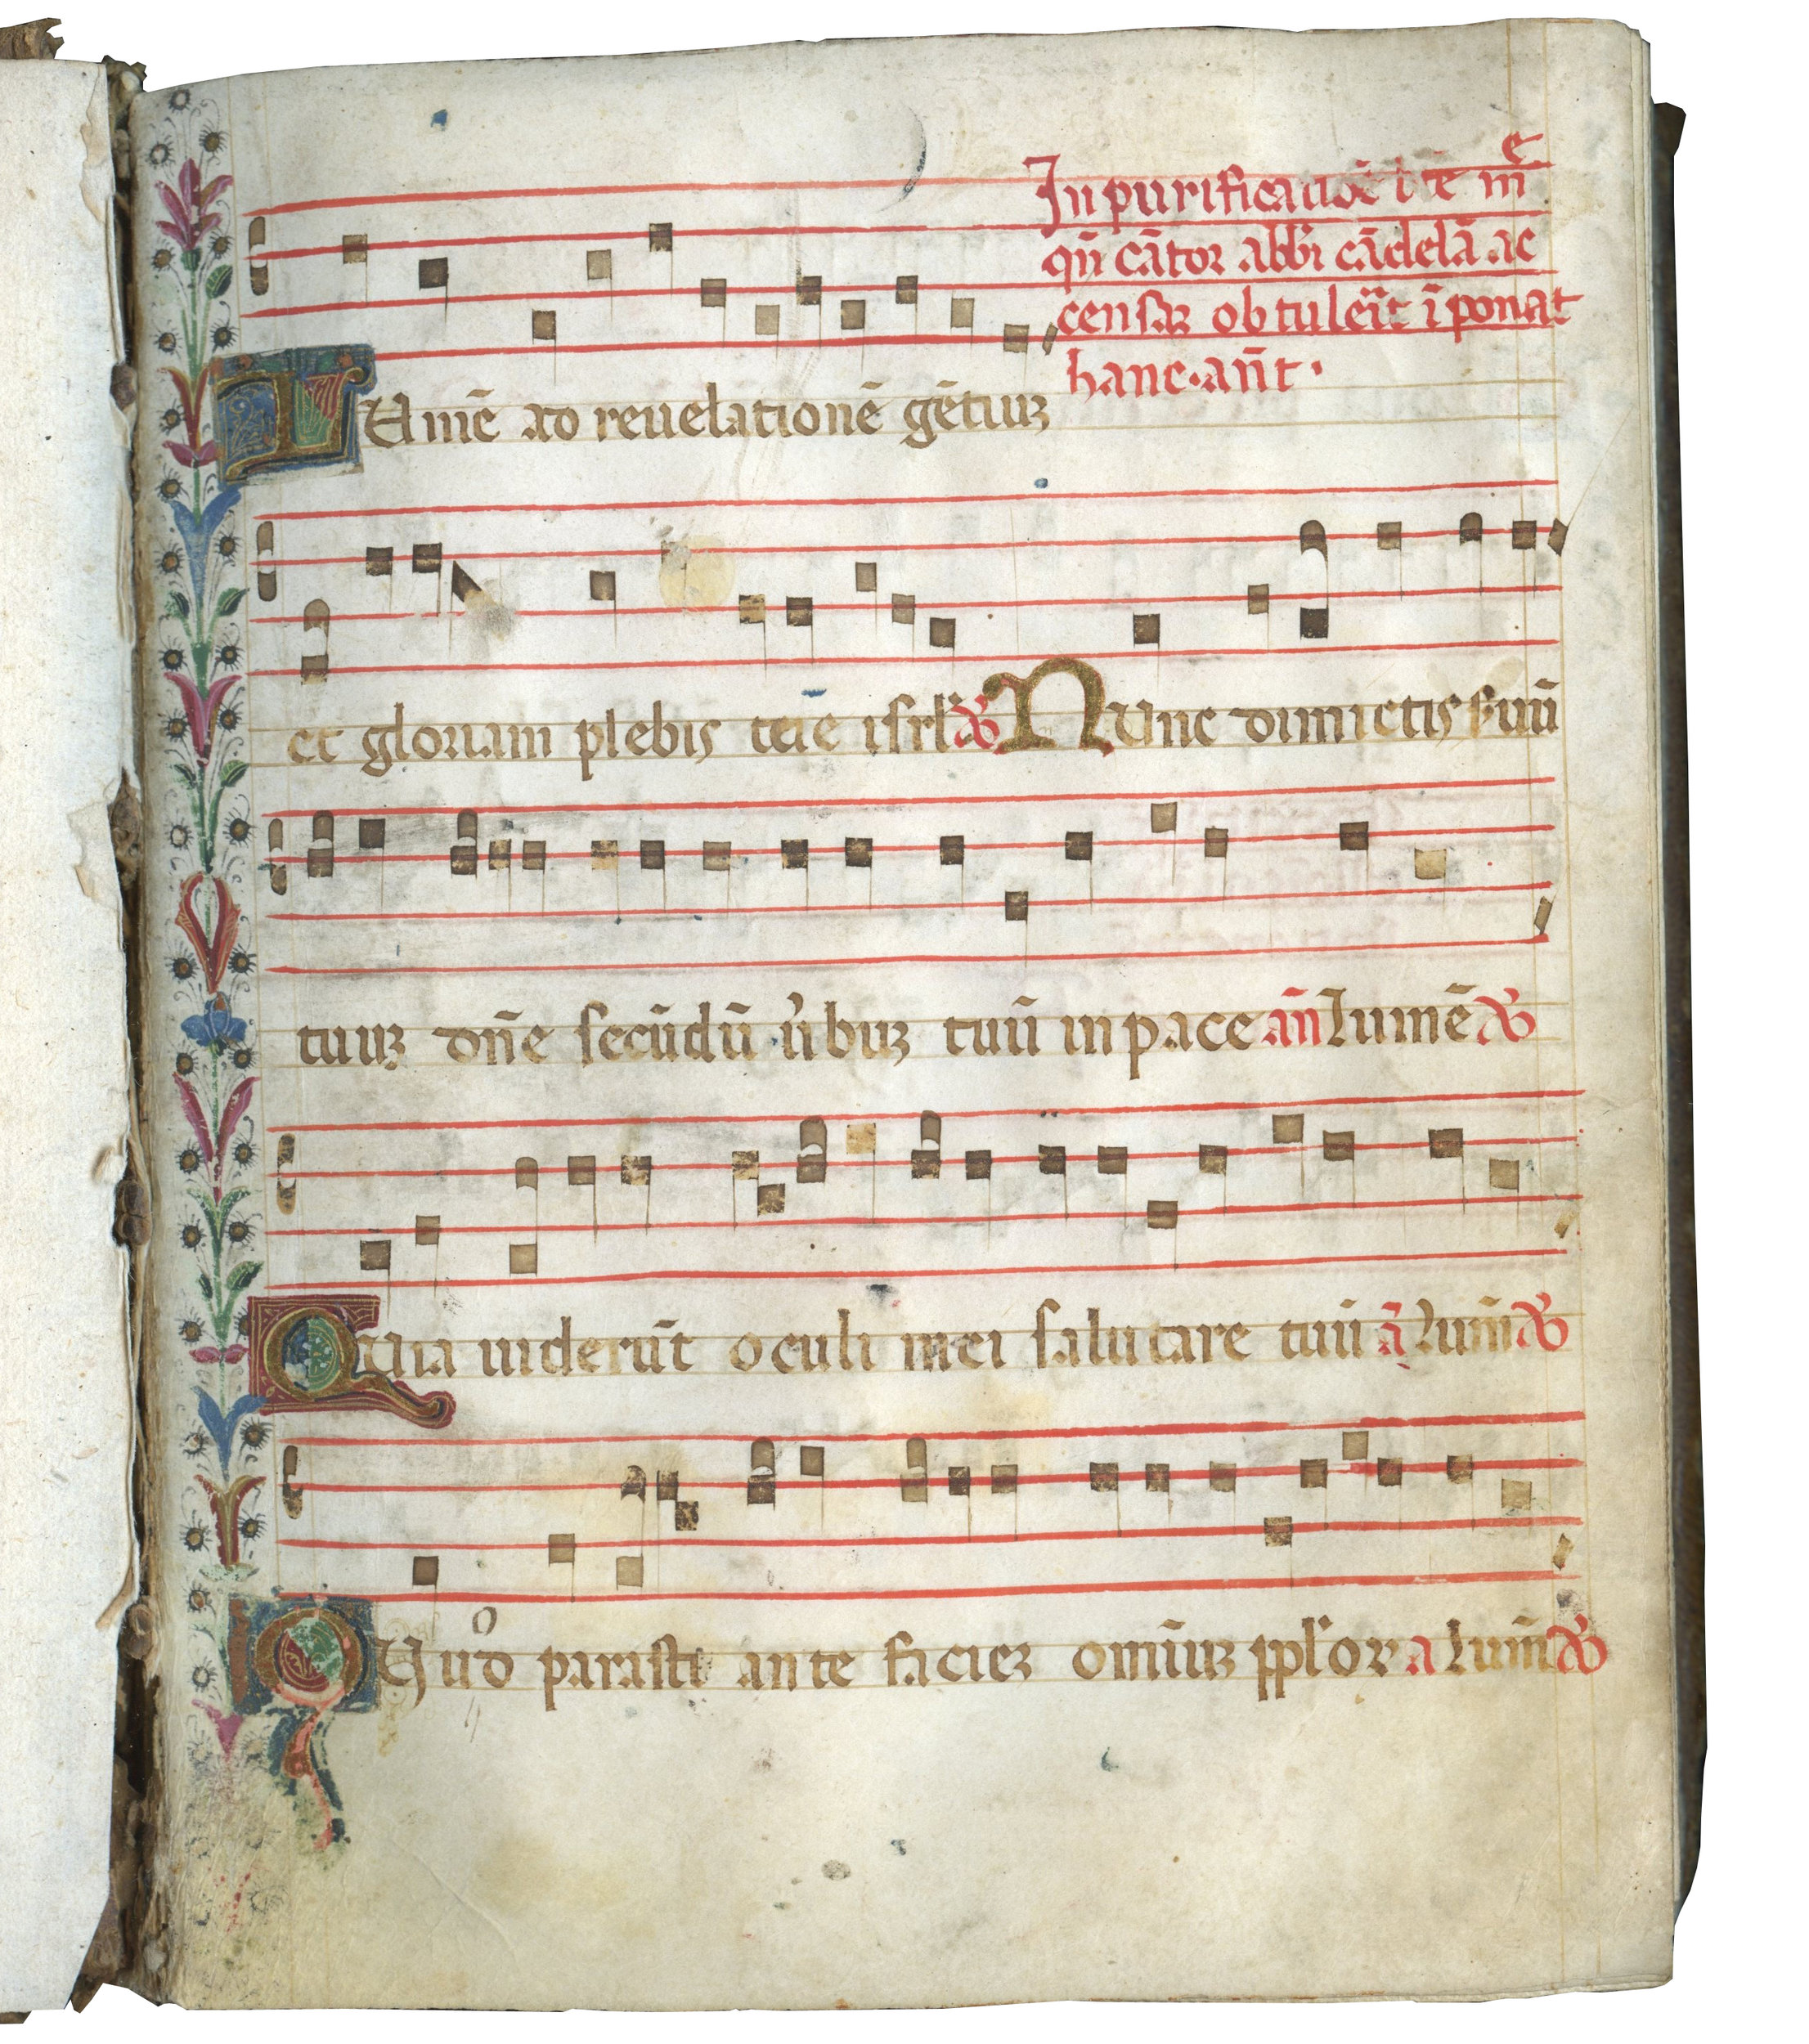 In purificatiōe b̄te m̄e
qn̄ cātor abb̄i cādelā ac
censaʒ obtulerīt īponat
hanc·an̄t·
LUmē ad reuelationē gētiuʒ
et gloriam plebis tue isrl̄ Nunc dimictis ẜuū
tuuʒ dn̄e secūdū v̓buʒ tuū in pace an̄ Lumē
Quia uiderūt oculi mei salutare tuū ā Lum̄
Quod parasti ante facieʒ omīuʒ ppl'oꝝ a Lum̄